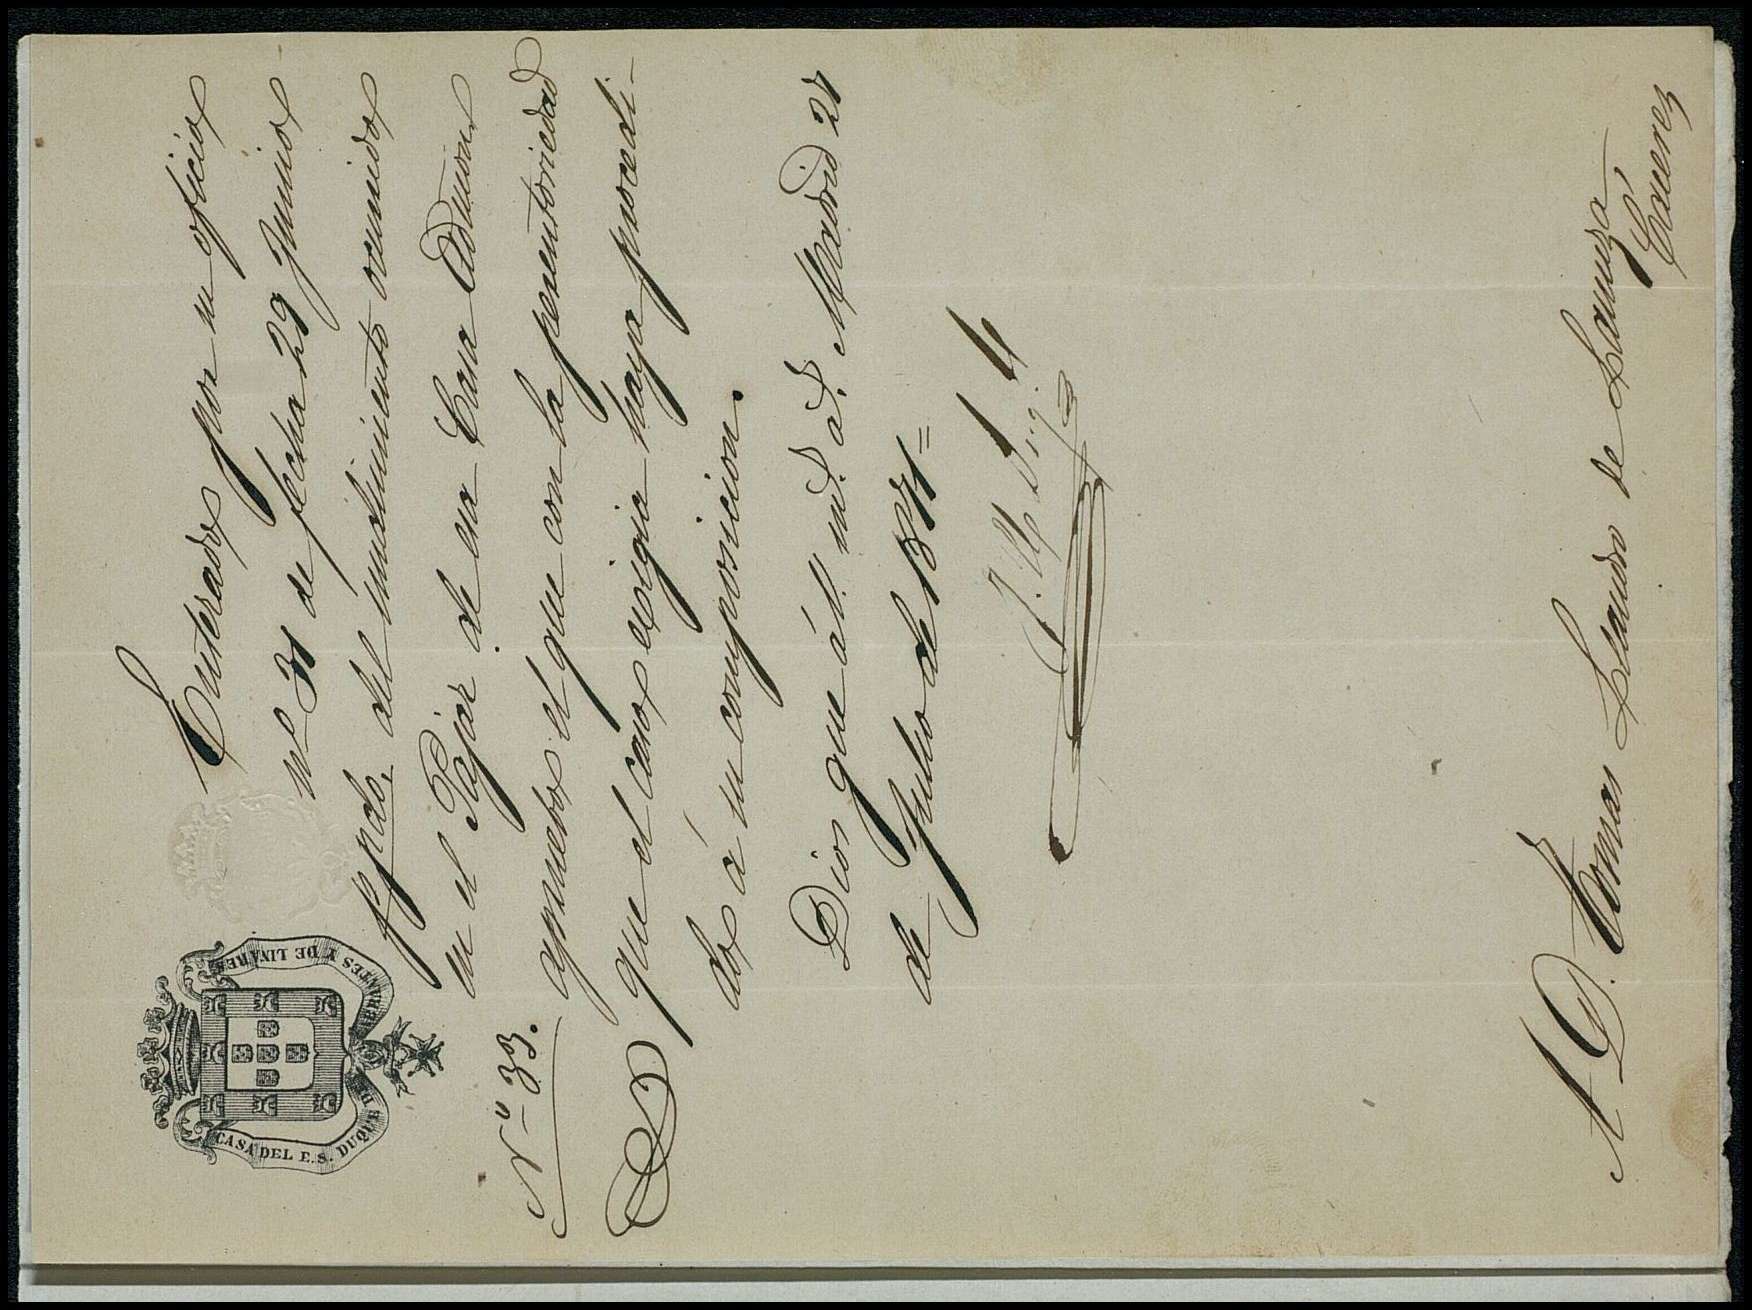 CASA DEL E.S. DUQUE D ABRANTES Y DE LINARES
Nº 33.
Enterado por su oficio
nº 31 de fecha 29 Junio
ppdo. del hundimiento ocurrido
en el Pajar de esa Casa Admon
apruebo el que con la perentoriedad
que el caso exigia haya procedi-
do á su composicion.
Dios gue á V. ms. as. Madrid 27
de Julio de 1871=
A D. Tomas Lizando de Lauuza
Cáceres